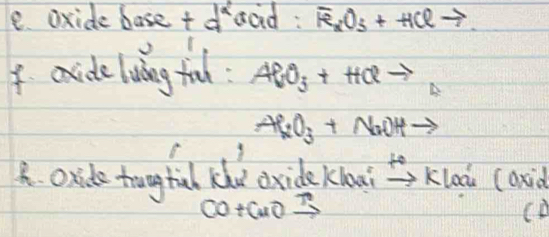 e. oxide base + d² acid : Fe₂O₃ + HCl →
f. oxide lưỡng tính : Al₂O₃ + HCl →
Al₂O₃ + NaOH →
h. Oxide trung tính khử oxide kloại —t°→ kloại (oxid
CO + CuO —t°→